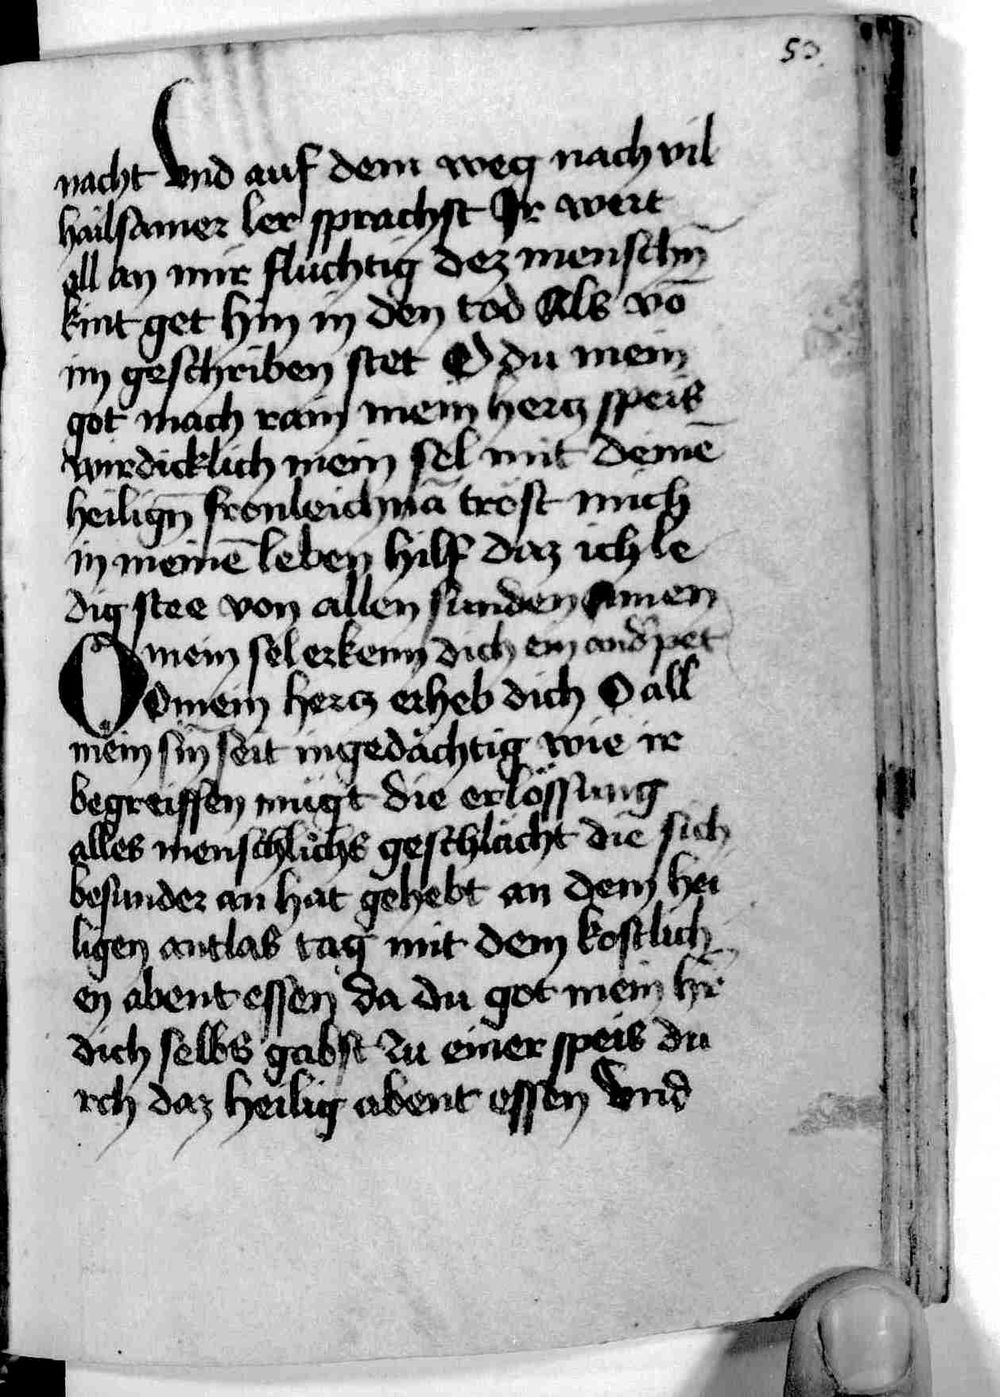 53.
nacht Vnd auf dem weg nach vil
hailsamer ler sprachst Ir wert
all an mir fluchtig dez menschn̄
kint get hin in den tod Als vō
im geschriben stet O du mein
got mach rain mein hercz speis
wirdicklich mein sel mit deinē
heilign̄ fronleichnā tröst mich
in meinē leben hilf daz ich le
dig stee von allen sunden Amen
O mein sel erkenn dich ein and' pet
O mein hercz erheb dich O all
mein sin̄ seit ingedächtig wie ir
begreiffen mügt die erlössung
alles menschlichs geschlächt die sich
besunder an hat gehebt an dem hei
ligen antlas tag mit dem kostlich
en abent essen da du got mein hr̄
dich selbs gabst zu einer speis du
rch daz heilig abent essen Vnd